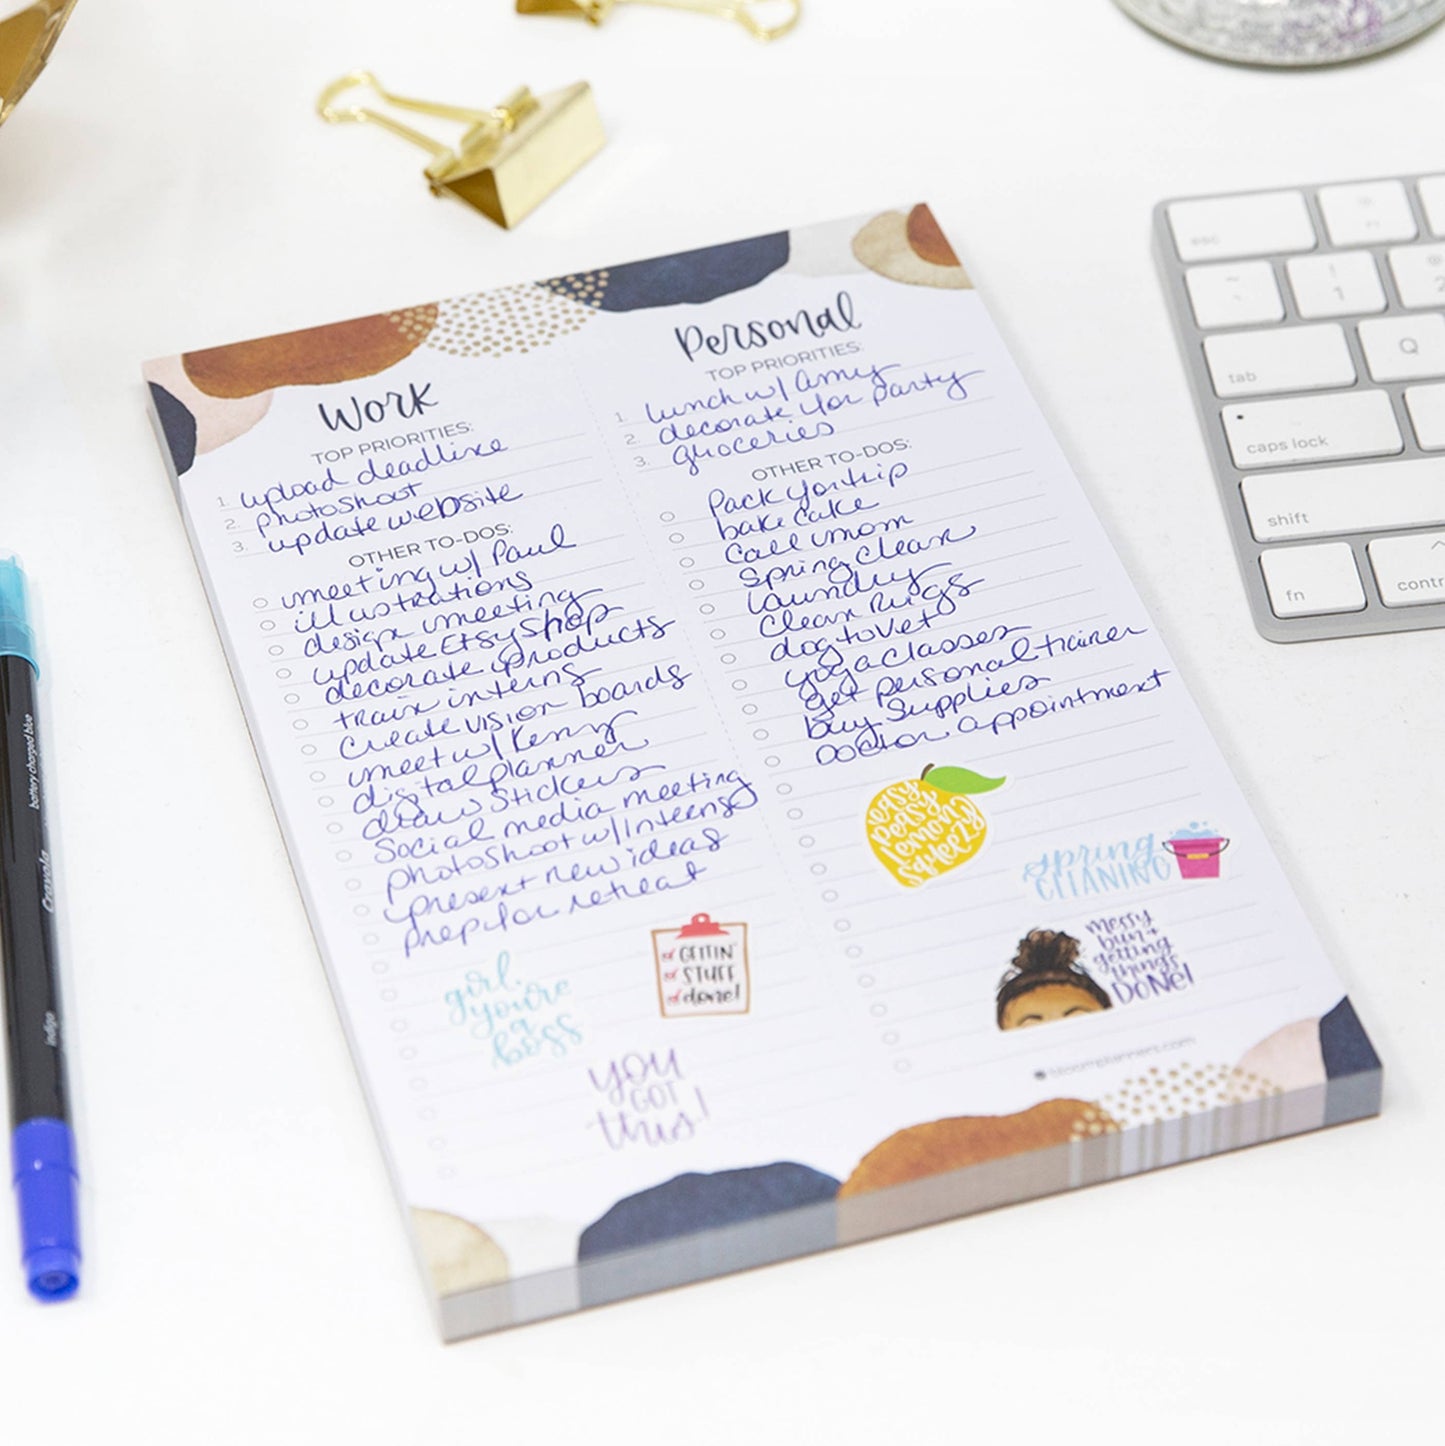 Work
TOP PRIORITIES:
1. upload deadline
2. photoshoot
3. update website
OTHER TO-DOS:
meeting w/ Paul
illustrations
design meeting
update Etsy shop
decorate products
train interns
create vision boards
meet w/ Kenny
digital planner
draw stickers
Social media meeting
photoshoot w/ interns
present new ideas
prep for retreat
girl,
you're
a
boss
GETTIN'
STUFF
done!
you
GOT
this!
Personal
TOP PRIORITIES:
1. lunch w/ amy
2. decorate for party
3. groceries
OTHER TO-DOS:
Pack for trip
bake cake
Call mom
Spring clean
laundry
Clean rugs
dog to vet
yoga classes
get personal trainer
buy supplies
Doctor appointment
easy
peasy
lemon
squeezy
spring
CLEANING
messy
bun +
getting
things
DONE!
bloomplanners.com
esc
~
!
1
2
tab
Q
caps lock
shift
fn
contr
battery charged blue
Crayola
indigo